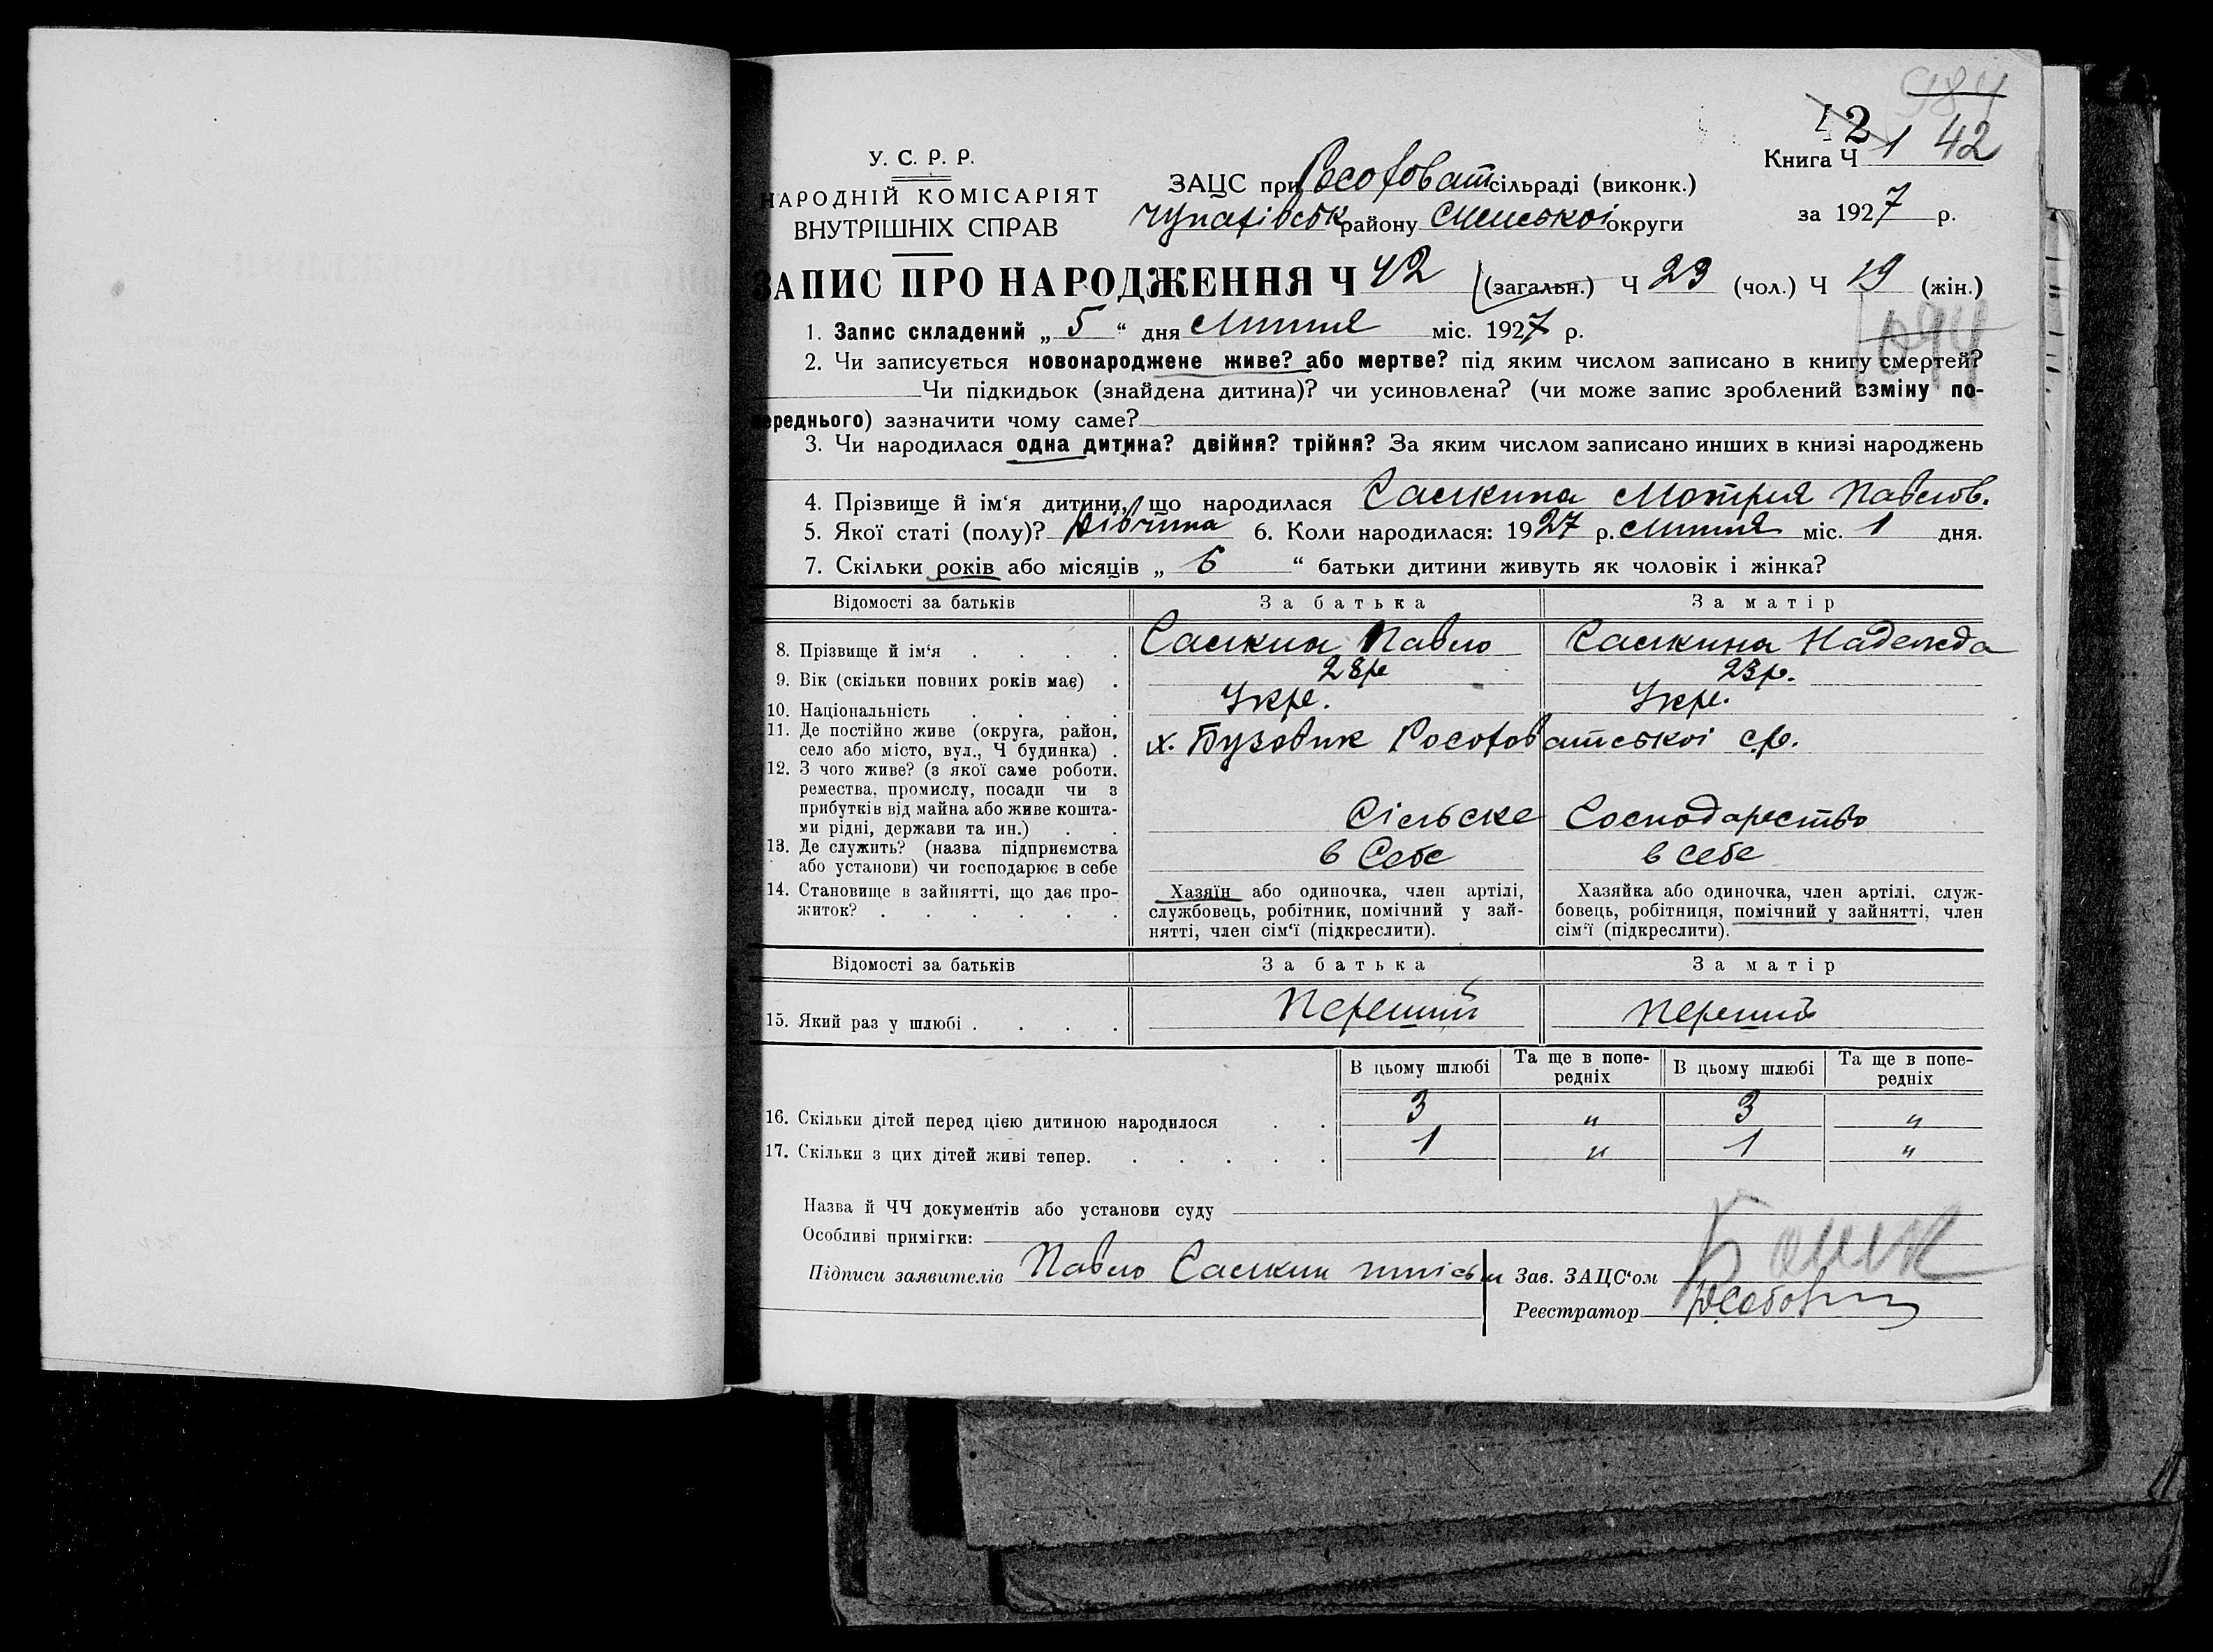 984
42
У. С. Р. Р.
Книга Ч 1 42
НАРОДНІЙ КОМІСАРІЯТ
ЗАЦС при Рософоват сільраді (виконк.)
ВНУТРІШНІХ СПРАВ
Чупахівськ району Сумської округи
за 1927 р.
ЗАПИС ПРО НАРОДЖЕННЯ Ч 42 (загальн.) Ч 23 (чол.) Ч 19 (жін.)
1. Запис складений „ 5 “ дня Липня міс. 1927 р.
2. Чи записується новонароджене живе? або мертве? під яким числом записано в книгу смертей?
Чи підкидьок (знайдена дитина)? чи усиновлена? (чи може запис зроблений взміну по-
переднього) зазначити чому саме?
3. Чи народилася одна дитина? двійня? трійня? За яким числом записано инших в книзі народжень
4. Прізвище й ім‘я дитини, що народилася Салкина Мотрия Павлов.
5. Якої статі (полу)? Дівчина 6. Коли народилася: 1927 р. Липня міс. 1 дня.
7. Скільки років або місяців „ 6 “ батьки дитини живуть як чоловік і жінка?
Відомості за батьків За батька За матір
8. Прізвище й ім‘я . . . . Салкин Павло Салкина Надежда
9. Вік (скільки повних років має) . 28р 23р.
10. Національність . . . . Укр. Укр.
11. Де постійно живе (округа, район,
село або місто, вул., Ч будинка) . х. Бузовик Рософоватської с.р.
12. З чого живе? (з якої саме роботи,
ремества, промислу, посади чи з
прибутків від майна або живе кошта-
ми рідні, держави та ин.) . . Сільске Господарство
13. Де служить? (назва підприємства
або установи) чи господарює в себе в Себе в себе
14. Становище в зайнятті, що дає про-
житок? . . . . . .
Хазяїн або одиночка, член артілі,
службовець, робітник, помічний у зай-
нятті, член сім‘ї (підкреслити).
Хазяйка або одиночка, член артілі, служ-
бовець, робітниця, помічний у зайнятті, член
сім‘ї (підкреслити).
Відомості за батьків За батька За матір
15. Який раз у шлюбі . . . . Перший Перший
В цьому шлюбі Та ще в попе-
редніх В цьому шлюбі Та ще в попе-
редніх
16. Скільки дітей перед цією дитиною народилося . . 3 „ 3 „
17. Скільки з цих дітей живі тепер. . . . . . 1 „ 1 „
Назва й ЧЧ документів або установи суду
Особливі примітки:
Підписи заявителів Павло Салкин
Зав. ЗАЦС‘ом
Реєстратор